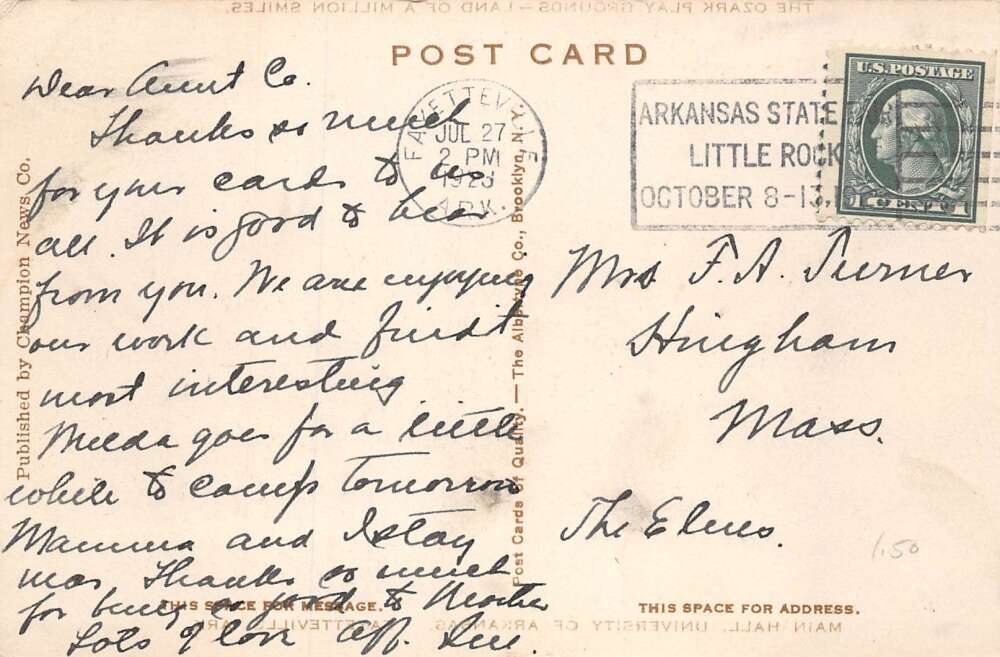 THE OZARK PLAY GROUNDS—LAND OF A MILLION SMILES.
POST CARD
FAYETTEVILLE
JUL 27
2 PM
192
ARK.
ARKANSAS STATE
LITTLE ROCK
OCTOBER 8-13, 1
U.S. POSTAGE
1 CENT 1
Dear Aunt Co.
Thanks so much
for your cards to us
all. It is good to hear
from you. We are enjoying
our work and find it
most interesting
Melda goes for a little
while to camp tomorrow
Mamma and I stay
Thanks so much
for being so good to Mother
Lots of love Aff. Sue.
Mrs F. A. Turner
Hingham
Mass.
The Elms.
1.50
Published by Champion News Co.
Post Cards of Quality. — The Albertype Co., Brooklyn, N.Y.
THIS SPACE FOR MESSAGE.
THIS SPACE FOR ADDRESS.
MAIN HALL, UNIVERSITY OF ARKANSAS, FAYETTEVILLE, ARK.